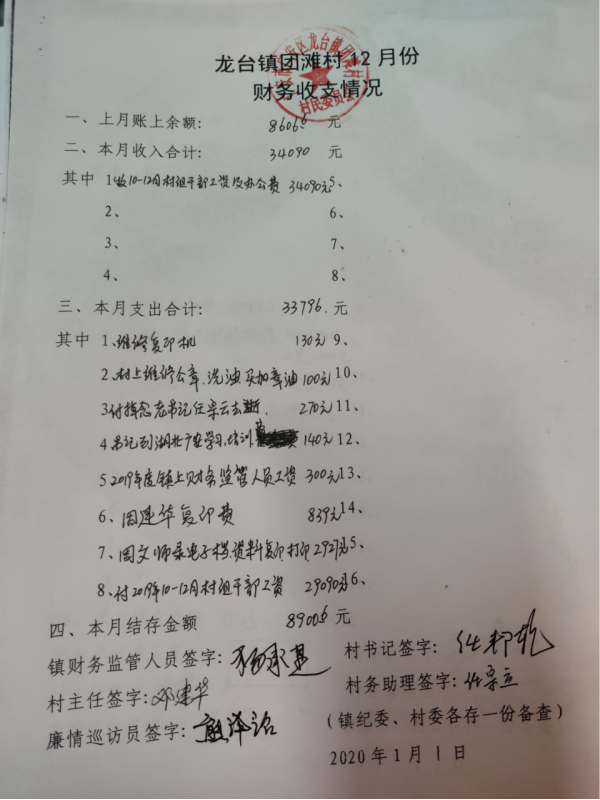 龙台镇团滩村12月份
财务收支情况
一、上月账上余额: 8606.6 元
二、本月收入合计: 34090 元
其中 1、收10-12月村组干部工资及办公费 34090元 5、
2、 6、
3、 7、
4、 8、
三、本月支出合计: 33796. 元
其中 1、维修复印机 130元 9、
2、村上维修公章、洗油买加章油 100元 10、
3付悼念老书记任宗云去逝, 270元 11、
4书记到湖北广安学习、培训 140元 12、
5 2019年度镇上财务监管人员工资 300元 13、
6、周建华复印费 839元 14、
7、周文师录电子档、资料复印打印 2927元 5、
8、付2019年10-12月村组干部工资 29090元 6、
四、本月结存金额 8900.6 元
镇财务监管人员签字: 村书记签字:
村主任签字:邓建华 村务助理签字:
廉情巡访员签字:
(镇纪委、村委各存一份备查)
2020年1月1日